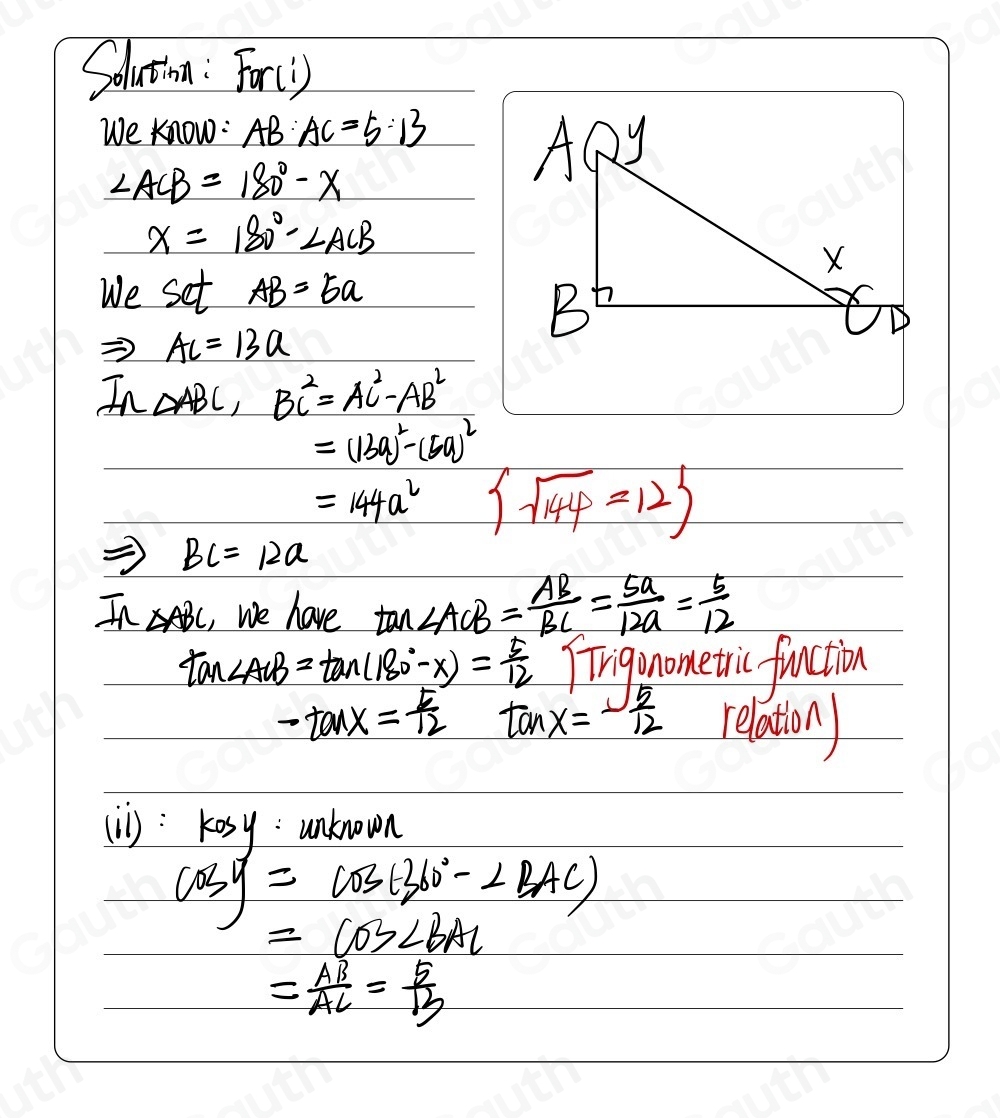 Solution: For(i)
We know: AB:AC=5:13
∠ACB = 180° - x
x = 180° - ∠ACB
We set AB = 5a
⇒ AC = 13a
In △ABC, BC² = AC² - AB²
= (13a)² - (5a)²
= 144a² {√144 = 12}
⇒ BC = 12a
In △ABC, we have tan∠ACB = AB/BC = 5a/12a = 5/12
tan∠ACB = tan(180° - x) = 5/12 {Trigonometric function
-tanx = 5/12 tanx = -5/12 relation}
(ii): kosy : unknown
cosy = cos(360° - ∠BAC)
= cos∠BAC
= AB/AC = 5/13
A y
x
B C D